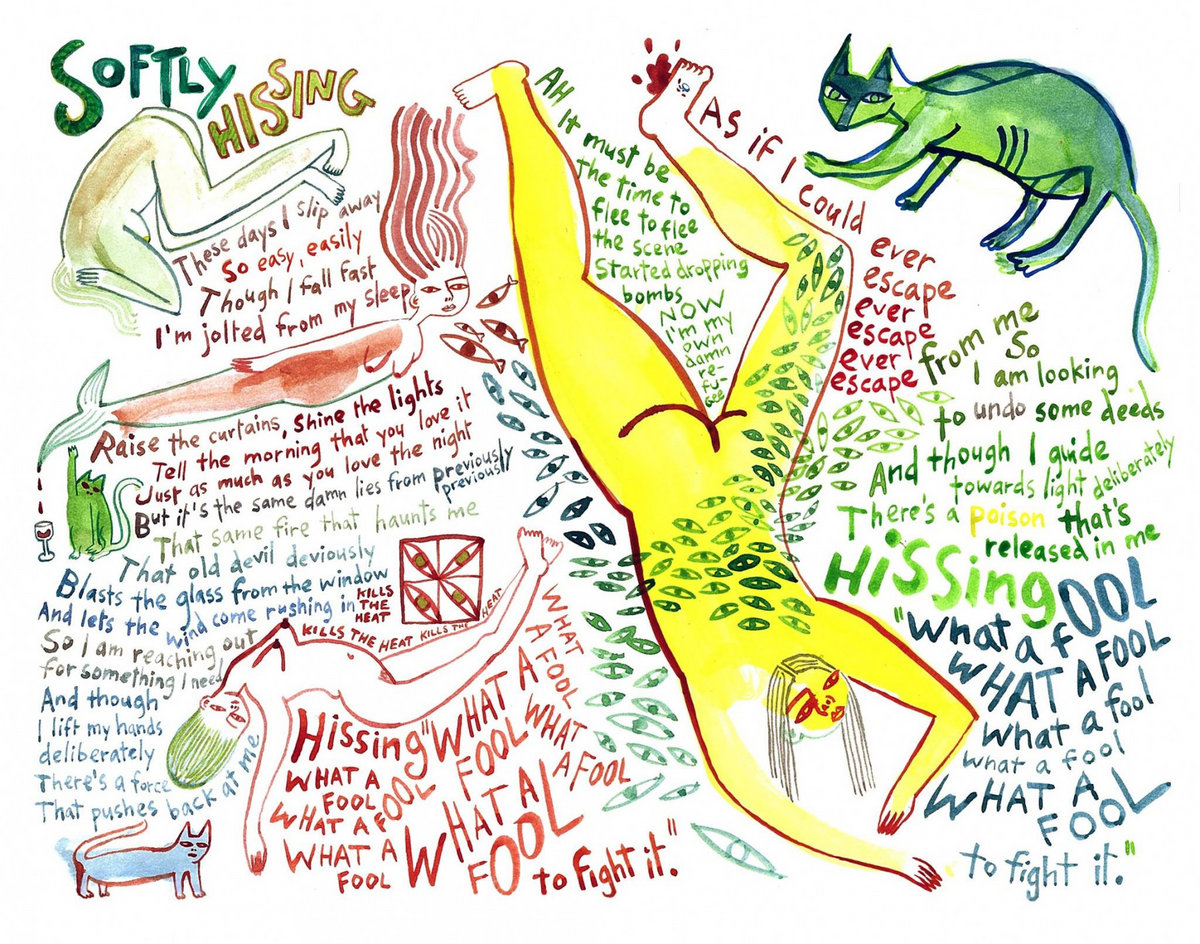 SOFTLY
HISSING
These days I slip away
So easy, easily
Though I fall fast
I'm jolted from my sleep
Raise the curtains, shine the lights
Tell the morning that you love it
Just as much as you love the night
But it's the same damn lies from previously
previously
That same fire that haunts me
That old devil deviously
Blasts the glass from the window
And lets the wind come rushing in
KILLS
THE
HEAT
KILLS THE HEAT KILLS THE HEAT
So I am reaching out
for something I need
And though
I lift my hands
deliberately
There's a force
That pushes back at me
Hissing "WHAT A
FOOL
WHAT A
FOOL
WHAT A
FOOL
WHAT A
FOOL
WHAT A FOOL
WHAT A
FOOL
WHAT A
FOOL
to fight it."
AH
It must be
The time to
flee to flee
the scene
Started dropping
bombs
NOW
I'm my
own
damn
re-
fu-
gee
As if I could
ever
escape
ever
escape
ever
escape
from me
So
I am looking
to undo some deeds
And though I guide
towards light deliberately
There's a poison that's
released in me
HiSSing
"What a fOOL
WHAT A FOOL
What a fool
what a fool
WHAT A
FOOL
to fight it."